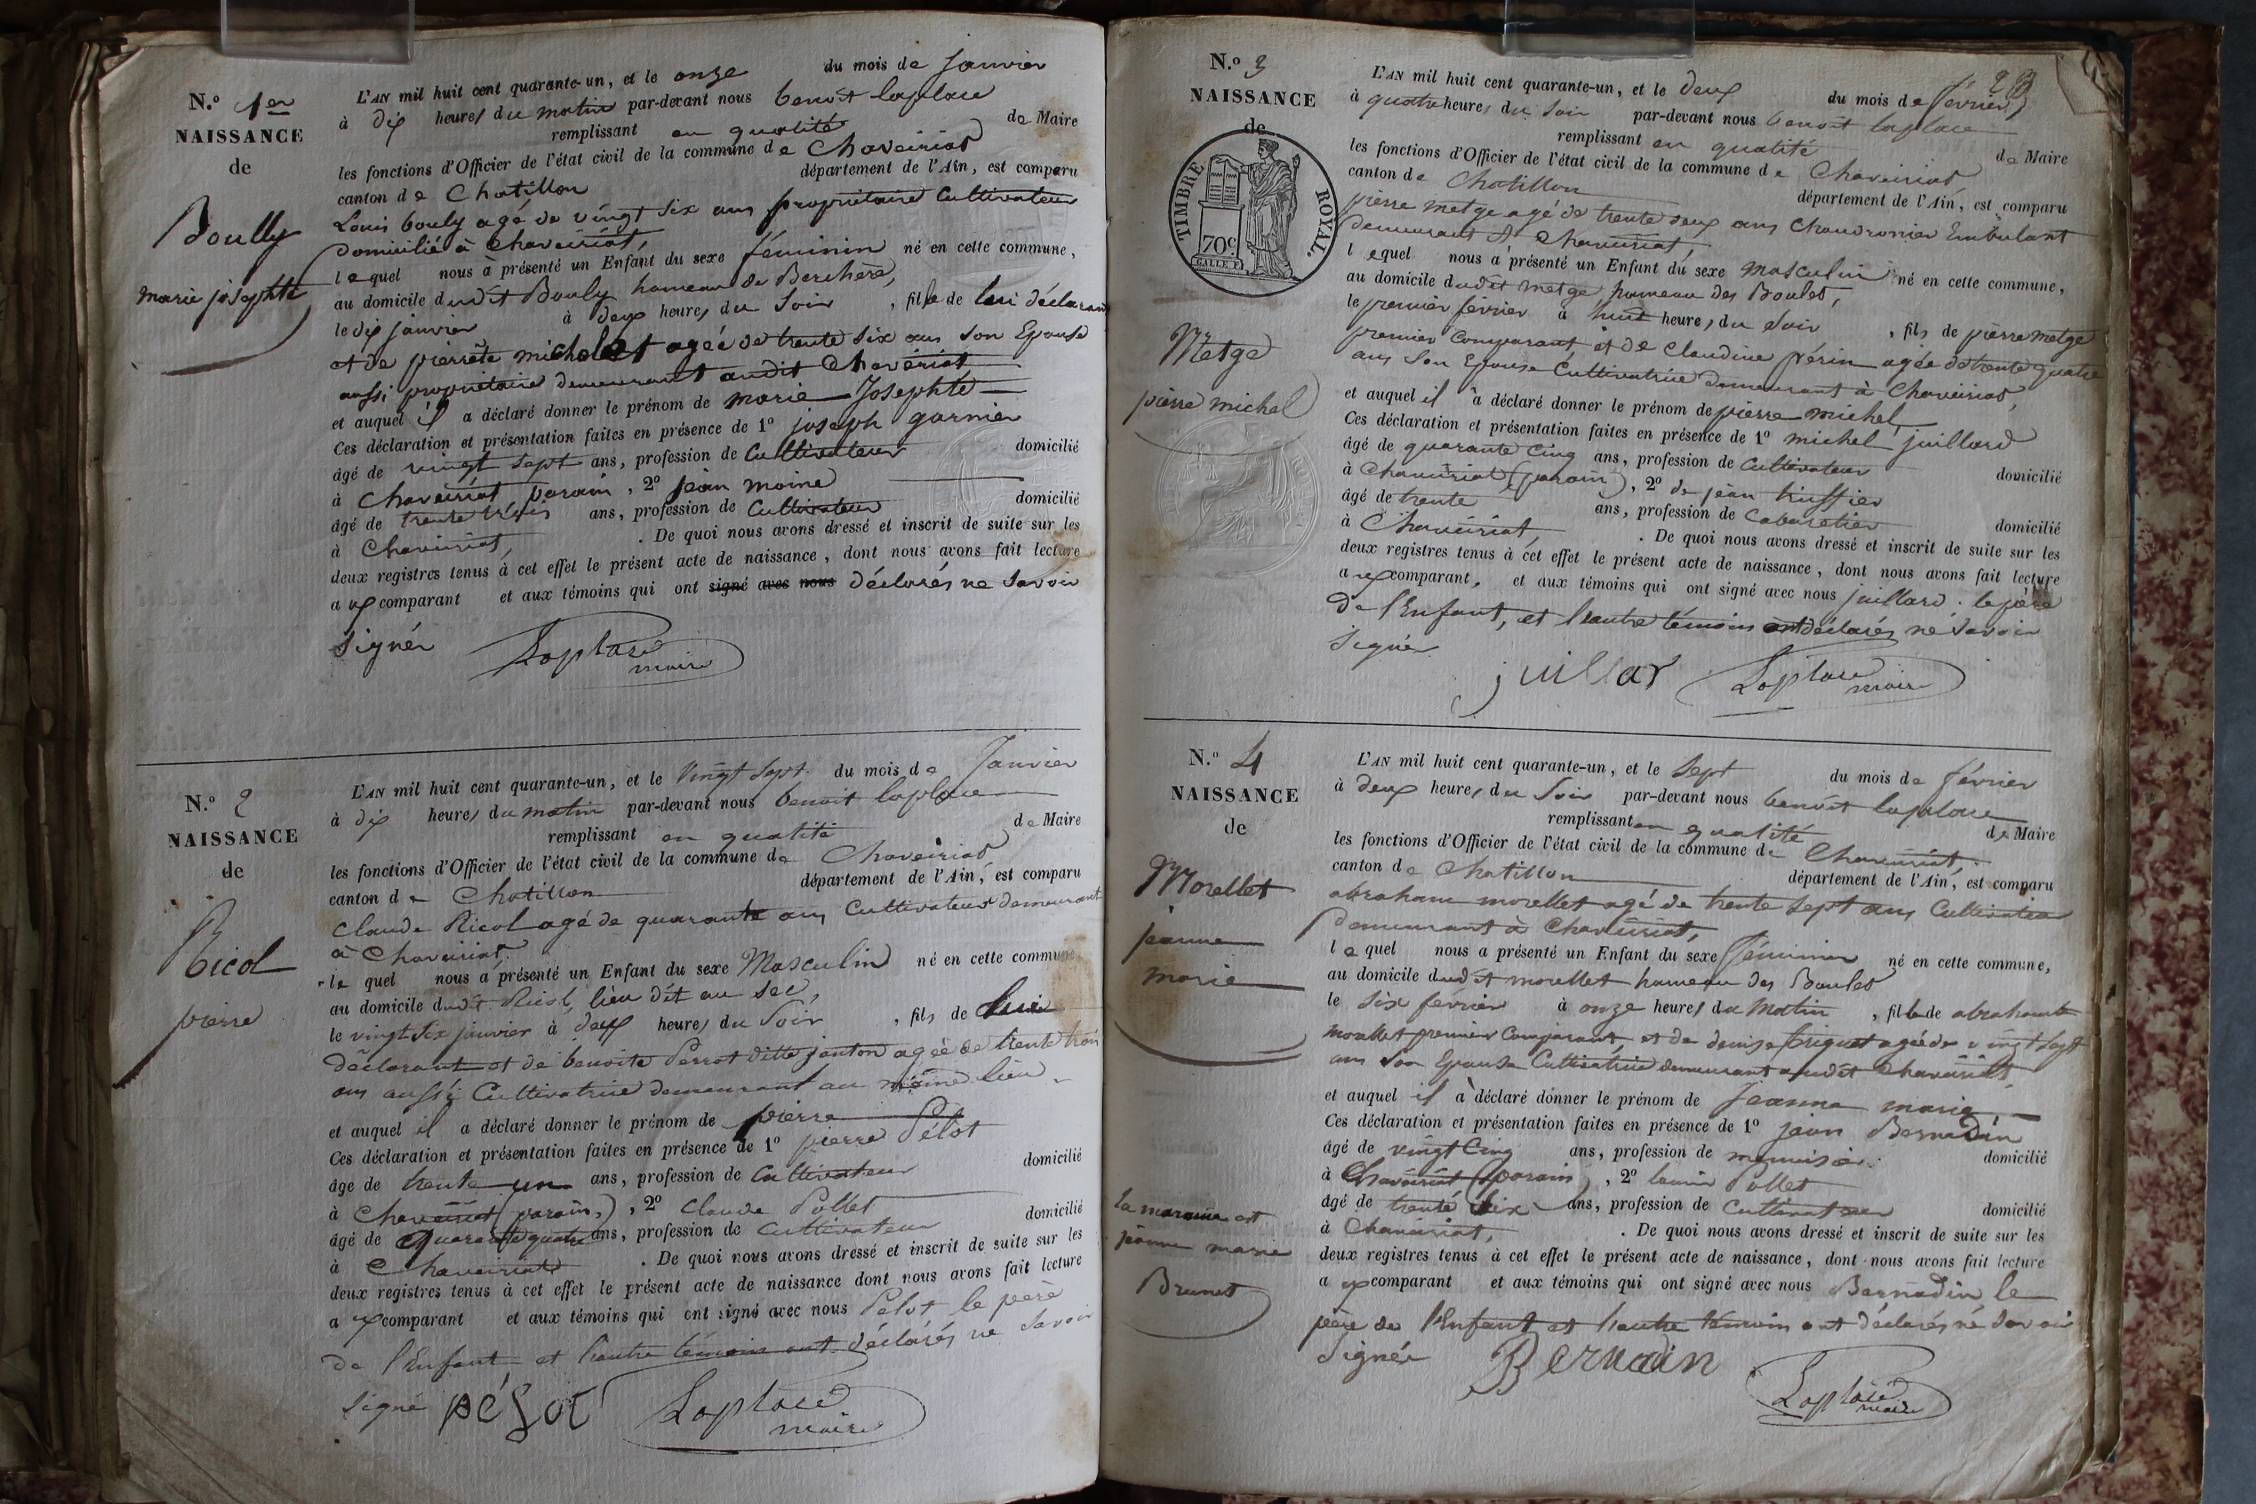 N.° 1er
NAISSANCE
de
Boully
marie josephte
L'AN mil huit cent quarante-un, et le onze du mois de Janvier
à dix heures du matin par-devant nous benoit laplace
remplissant en qualité de Maire
les fonctions d'Officier de l'état civil de la commune de Chaveiriat
canton de Chatillon département de l'Ain, est comparu
Louis bouly agé de vingt six ans propriétaire Cultivateur
domicilié à chaveiriat,
lequel nous a présenté un Enfant du sexe féminin né en cette commune,
au domicile dudit Bouly hameau de Berchère,
le dix janvier à deux heures du Soir, fille de lui déclarant
et de pierrete michelet agée de trente six ans son Epouse
aussi propriétaire demeurant audit Chavériat
et auquel il a déclaré donner le prénom de marie Josephte
Ces déclaration et présentation faites en présence de 1° joseph garnier
âgé de vingt sept ans, profession de Cultivateur domicilié
à Chaveiriat, parain, 2° jean moine
âgé de trente trois ans, profession de Cultivateur domicilié
à Chaveiriat, . De quoi nous avons dressé et inscrit de suite sur les
deux registres tenus à cet effet le présent acte de naissance, dont nous avons fait lecture
aux comparant et aux témoins qui ont signé avec nous déclarés ne Savoir
Signér Laplace
maire
N.° 2
NAISSANCE
de
Ricol
pierre
L'AN mil huit cent quarante-un, et le Vingt Sept du mois de Janvier
à dix heures du matin par-devant nous benoit laplace
remplissant en qualité de Maire
les fonctions d'Officier de l'état civil de la commune de Chaveiriat
canton de Chatillon département de l'Ain, est comparu
Claude Ricol agé de quarante ans Cultivateur demeurant
à Chaveiriat.
le quel nous a présenté un Enfant du sexe Masculin né en cette commune
au domicile dudit Ricol, lieu dit au sec,
le vingt six janvier à deux heures du Soir, fils de lui
déclarant et de benoite Perrot ditte janton agée de trente trois
ans aussi Cultivatrice demeurant au même lieu
et auquel il a déclaré donner le prénom de pierre
Ces déclaration et présentation faites en présence de 1° pierre Pélot
âgé de trente un ans, profession de Cultivateur domicilié
à Chaveiriat (parain,), 2° Claude Pollet
âgé de quarante quatre ans, profession de Cultivateur domicilié
à Chaveiriat . De quoi nous avons dressé et inscrit de suite sur les
deux registres tenus à cet effet le présent acte de naissance dont nous avons fait lecture
aux comparant et aux témoins qui ont signé avec nous Pelot le père
de l'Enfant et l'autre témoin ont déclarés ne Savoir
signé pélot Laplace
maire
N.° 3
NAISSANCE
de
TIMBRE ROYAL.
70c
Metge
pierre michel
L'AN mil huit cent quarante-un, et le deux du mois de février
à quatre heures du Soir par-devant nous benoit laplace
remplissant en qualité de Maire
les fonctions d'Officier de l'état civil de la commune de Chaveiriat
canton de Chatillon département de l'Ain, est comparu
pierre metge agé de trente deux ans Chaudronier Embulant
demeurant à Chaveiriat,
lequel nous a présenté un Enfant du sexe masculin né en cette commune,
au domicile dudit metge hameau des Boules,
le premier février à huit heures, du Soir, fils de pierre metge
premier Comparant et de Claudine Périn agée de trente quatre
ans Son Epouse Cultivatrice demeurant à Chaveiriat,
et auquel il a déclaré donner le prénom de pierre michel
Ces déclaration et présentation faites en présence de 1° michel juillard
âgé de quarante Cinq ans, profession de Cultivateur domicilié
à Chaveiriat (parain), 2° de jean truffier
âgé de trente ans, profession de Cabaretier domicilié
à Chaveiriat, . De quoi nous avons dressé et inscrit de suite sur les
deux registres tenus à cet effet le présent acte de naissance, dont nous avons fait lecture
aux comparant, et aux témoins qui ont signé avec nous juillard. le père
de l'Enfant, et l'autre témoin ont déclarés ne Savoir
Signer
juillar Laplace
maire
N.° 4
NAISSANCE
de
Morellet
jeanne
marie
la maraine est
jeanne marie
Brunet
L'AN mil huit cent quarante-un, et le Sept du mois de février
à deux heures du Soir par-devant nous benoit laplace
remplissant en qualité de Maire
les fonctions d'Officier de l'état civil de la commune de Chaveiriat.
canton de Chatillon département de l'Ain, est comparu
abraham morellet agé de trente Sept ans Cultivateur
demeurant à Chaveiriat,
lequel nous a présenté un Enfant du sexe féminin né en cette commune,
au domicile dudit morellet hameau des Boules
le Six février à onze heures du Matin, fille de abraham
morellet premier Comparant et de denise agée de vingt Sept
ans Son Epouse Cultivatrice demeurant audit Chaveiriat
et auquel il a déclaré donner le prénom de Jeanne marie,
Ces déclaration et présentation faites en présence de 1° jean Bernadin
âgé de vingt Cinq ans, profession de menuisier domicilié
à Chaveiriat (parain), 2° Pollet
âgé de trente Six ans, profession de Cultivateur domicilié
à Chaveiriat, . De quoi nous avons dressé et inscrit de suite sur les
deux registres tenus à cet effet le présent acte de naissance, dont nous avons fait lecture
aux comparant et aux témoins qui ont signé avec nous Bernadin le
père de l'Enfant et l'autre témoin ont déclarés ne Savoir
Signér Bernadin
Laplace
maire